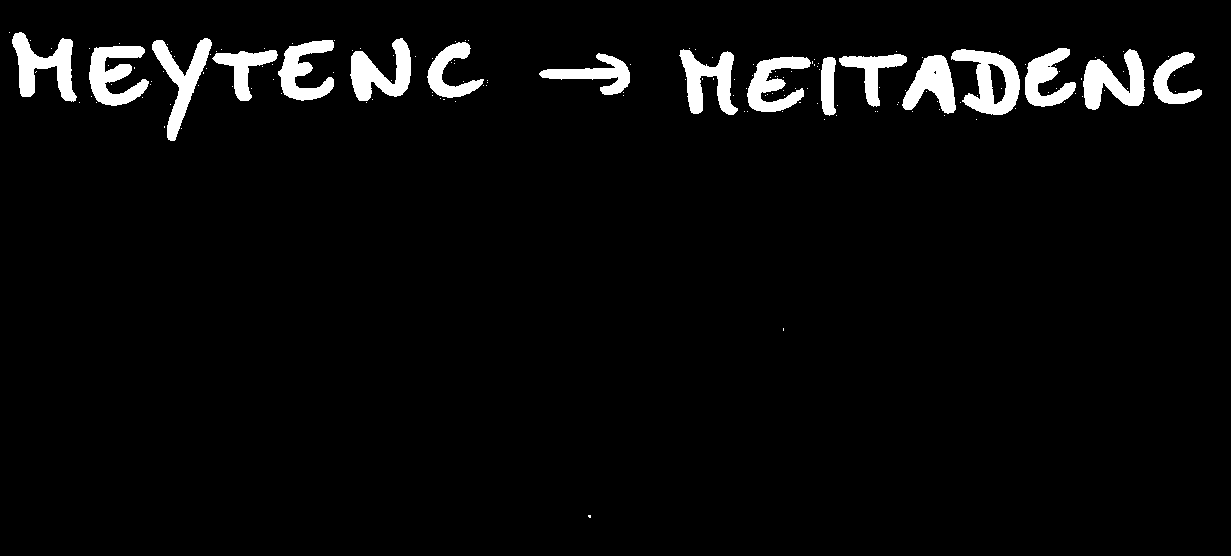 MEYTENC → MEITADENC